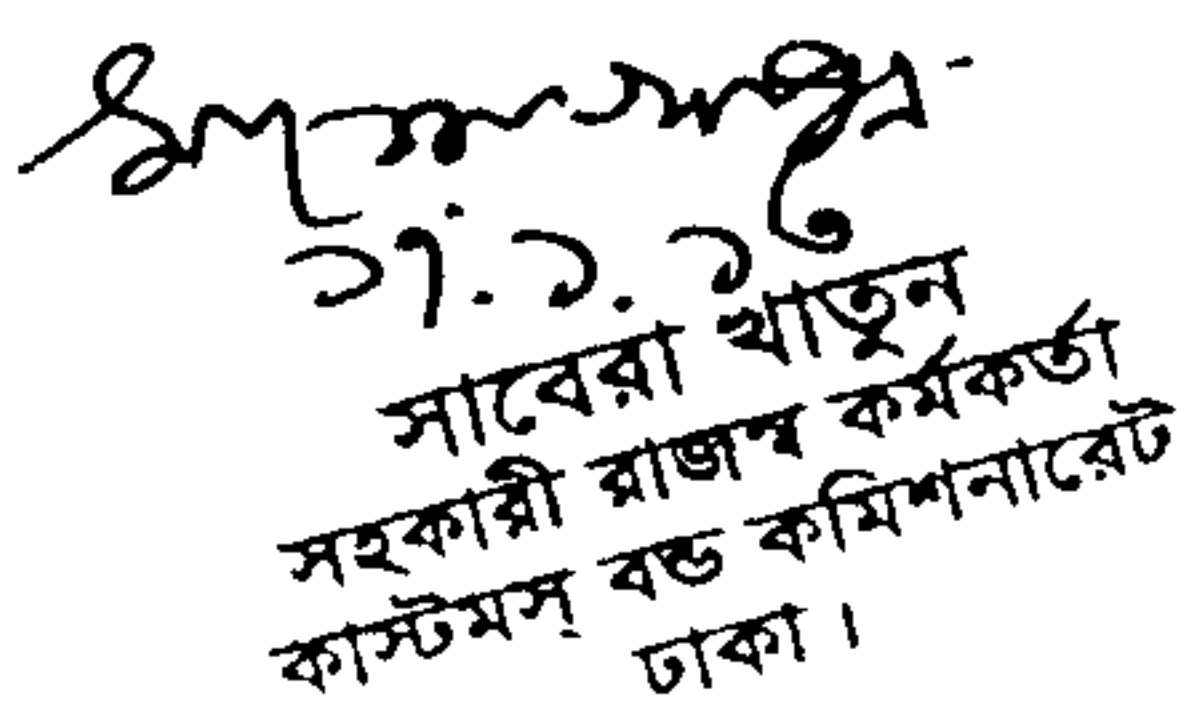 সাবেরা খাতুন
সহকারী রাজস্ব কর্মকর্তা
কাস্টমস্ বন্ড কমিশনারেট
ঢাকা।